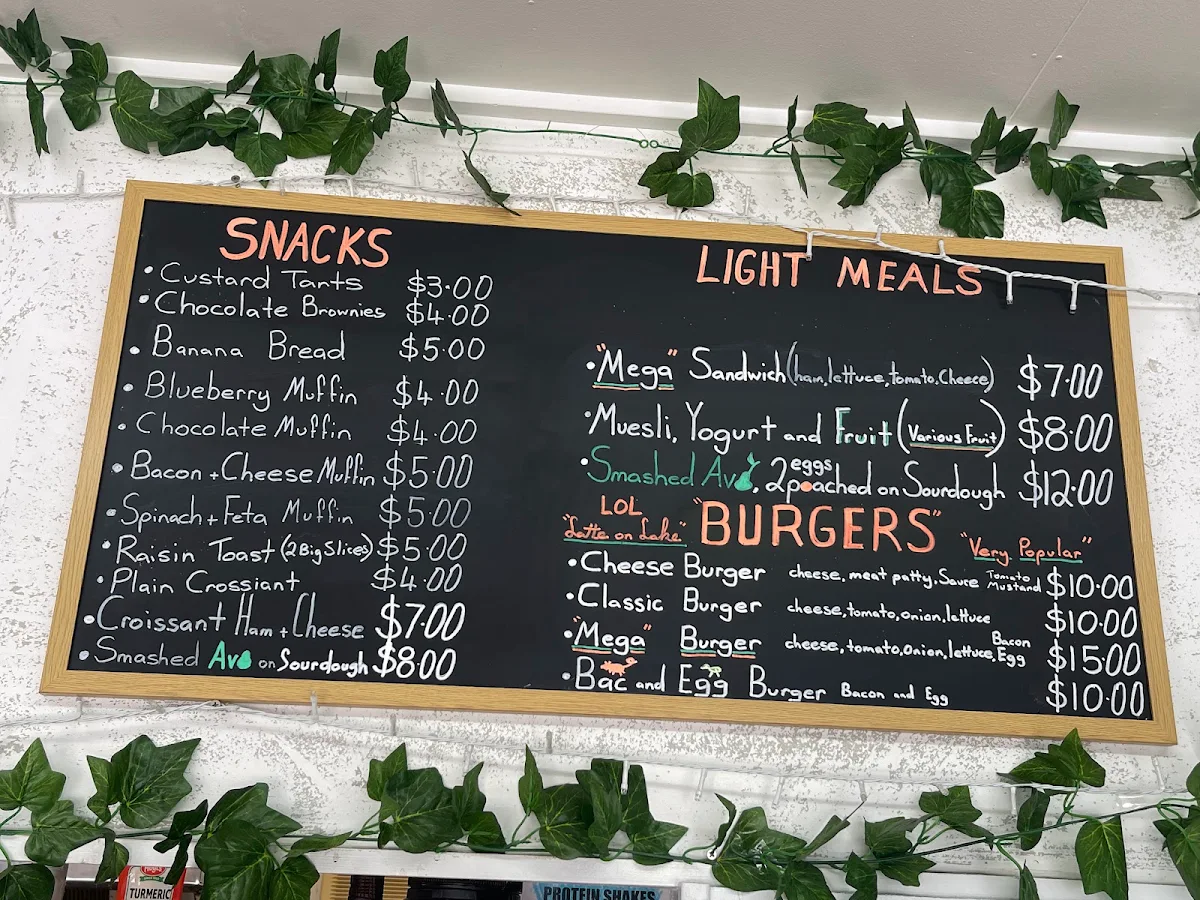 SNACKS
• Custard Tants $3.00
• Chocolate Brownies $4.00
• Banana Bread $5.00
• Blueberry Muffin $4.00
• Chocolate Muffin $4.00
• Bacon + Cheese Muffin $5.00
• Spinach + Feta Muffin $5.00
• Raisin Toast (2 Big Slices) $5.00
• Plain Crossiant $4.00
• Croissant Ham + Cheese $7.00
• Smashed Avo on Sourdough $8.00
LIGHT MEALS
• "Mega" Sandwich (ham, lettuce, tomato, Cheese) $7.00
• Muesli, Yogurt and Fruit (Various Fruit) $8.00
• Smashed Avo, 2 eggs poached on Sourdough $12.00
LOL
"Latte on Lake" "BURGERS" "Very Popular"
• Cheese Burger cheese, meat patty, Sauce Tomato Mustand $10.00
• Classic Burger cheese, tomato, onion, lettuce $10.00
• "Mega" Burger cheese, tomato, onion, lettuce, Bacon Egg $15.00
• Bac and Egg Burger Bacon and Egg $10.00
TURMERIC
PROTEIN SHAKES